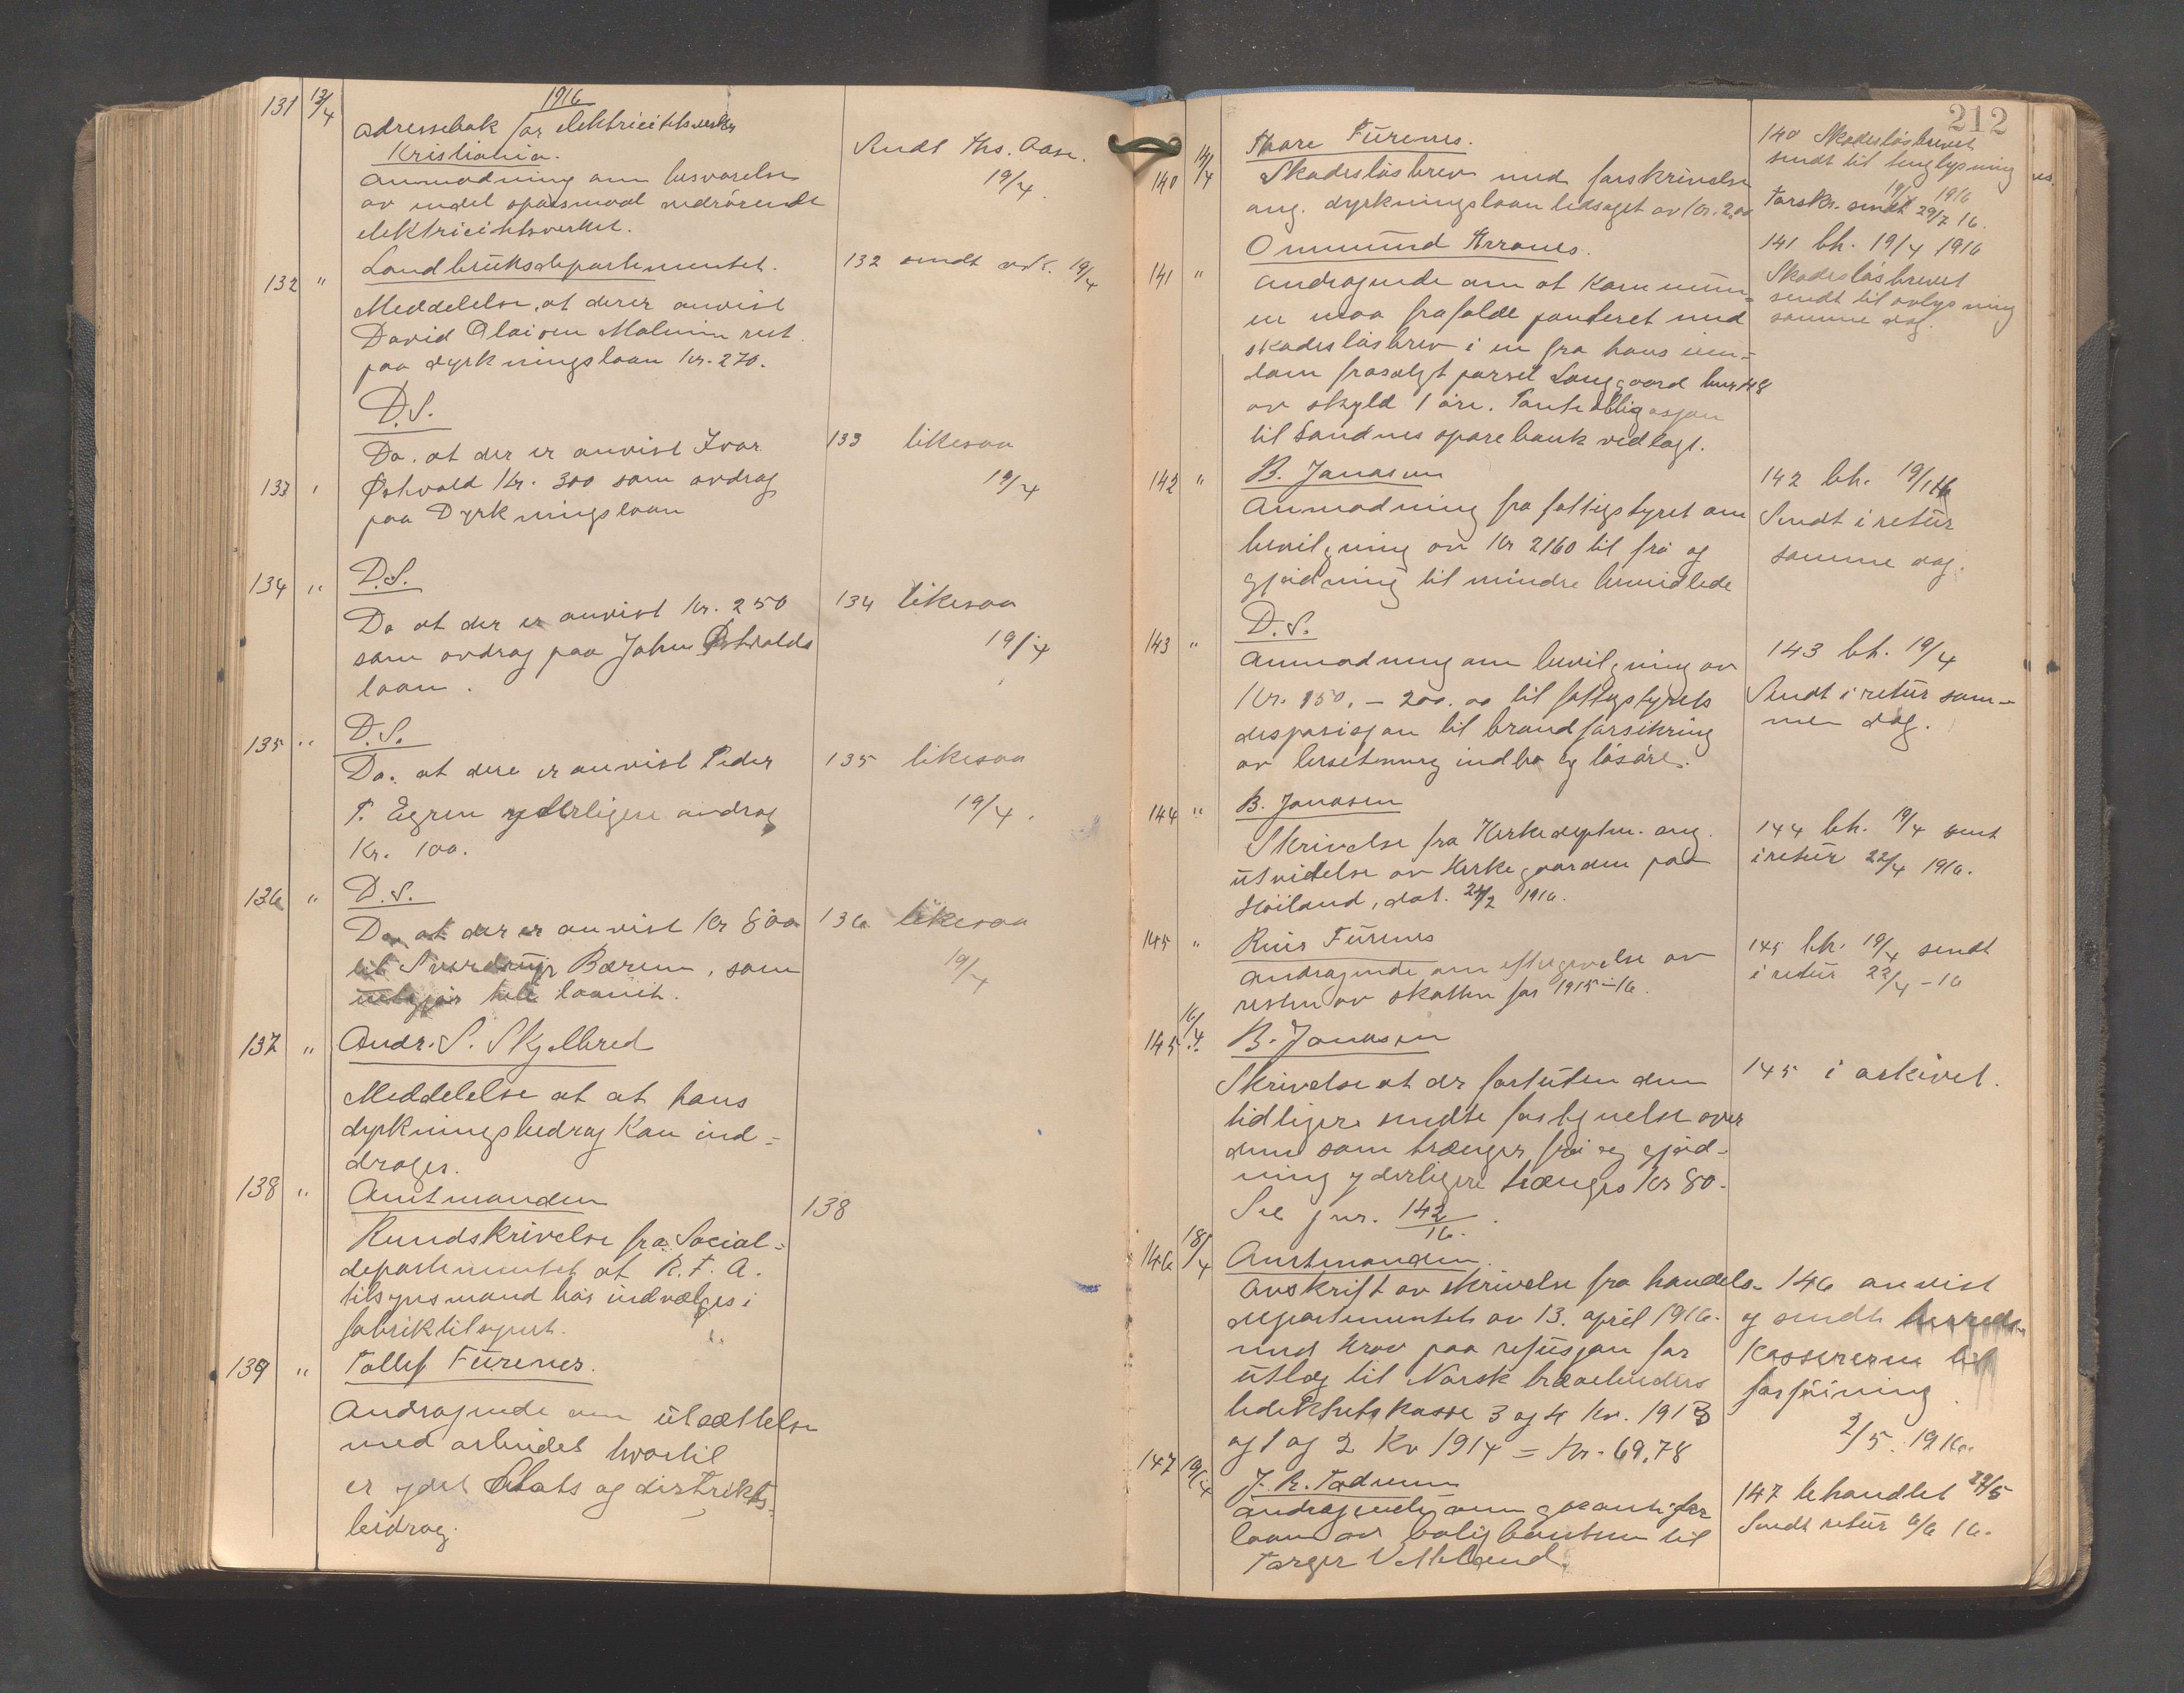 1916
131 13/4 Adressebok for elektricitetsverker
Kristiania.
Anmodning om besvarelse
av endel spørsmaal vedrörende
elektricitetsverket.
Sendt Ths. Aase.
19/4.
132 " Landbruksdepartementet.
Meddelelse, at der er anvist
David Olaisen Malmin rest
paa dyrkningslaan kr. 270.
132 sendt 19/4
D.S.
Do. at der er anvist Ivar
133 " Østvold Kr. 300 som avdrag
paa Dyrkningslaan
133 likesaa
19/4
134 " D.S.
Do at der er anvist kr. 250
som avdrag paa John Østvolds
laan.
134 likesaa
19/4
135 " D.S.
Do. at dere er anvist Peder
T. Egren yderligere avdrag
Kr. 100.
135 likesaa
19/4.
136 " D.S.
Do at der er anvist kr 800
til Bærem, som
utgjør hele laanet.
136 likesaa
19/4
137 " Andr. S. Skjelbred
Meddelelse at at hans
dyrkningsbedrag kan ind-
drages.
138 " Amtmanden
Rundskrivelse fra Social-
departementet at R.F.A.
tilsynsmand bör indvælges i
fabriktilsynet.
138
139 " Tollef Fürenes.
Andragende om utsættelse
med arbeidet hvortil
er ydet Stats og distrikts-
beidrag.
212
Tore Fürenes.
140 14/4 Skadeslösbrev med forskrivelse
ang. dyrkningslaan ledsaget av kr. 2,00
140 Skadeslösbrevet
sendt til tinglysning
19/4 1916
Forskr. sendt 29/7 16.
Ommund
141 " Andragende om at kommun-
en maa frafalde panteret med
skadeslösbrev i en fra hans eien-
dom frasolgt parsel Langgaard bnr 148
av skyld 1 öre. Panteobligasjon
til Sandnes sparebank vedlagt.
141 bh. 19/4 1916
Skadeslösbrevet
sendt til avlysning
samme dag.
142 " B. Jonasen
Anmodning fra fattigstyret om
bevilgning av kr 2160 til frö og
gjödning til mindre bemidlede
142 bh. 19/4 16
Sendt i retür
samme dag.
D.S.
143 " Anmodning om bevilgning av
Kr. 150. – 200.00 til fattigstyrets
desposisjon til brandforsikring
av besetning indbo og lösöre.
143 bh. 19/4
Sendt i retür sam-
men dag.
144 " B. Jonasen
Skrivelse fra Kirkedeptm. ang.
utvidelse av kirkegaarden paa
Höiland, dat. 24/2 1916.
144 bh. 19/4 sent
i retür 22/4 1916.
145 " Fürenes
Andragende om eftergivelse av
resten av skatten for 1915–16.
145 bh. 19/4 sendt
i retür 22/4 – 16
16/4
145 " B. Jonasen
Skrivelse at der foruten den
tidligere sendte fortegnelse over
dem som trænger frö og gjöd-
ning yderligere trænges kr 80.
See jnr. 142/16.
145 i arkivet.
146 18/4 Amtmanden.
Avskrift av skrivelse fra handels-
departementet av 13. april 1916.
med krav paa refusjon for
ütlæg til Norsk
kasse 3 og 4 kv. 1913
og 1 og 2 Kv 1914 = kr. 69,78
146 anvist
og sendt herreds-
kassereren til
forföining
2/5. 1916.
147 19/4 J. R.
andragende om garanti for
laan av boligbanken til
Torger Vetteland.
147 behandlet 22/5
Sendt retur 6/6 16.